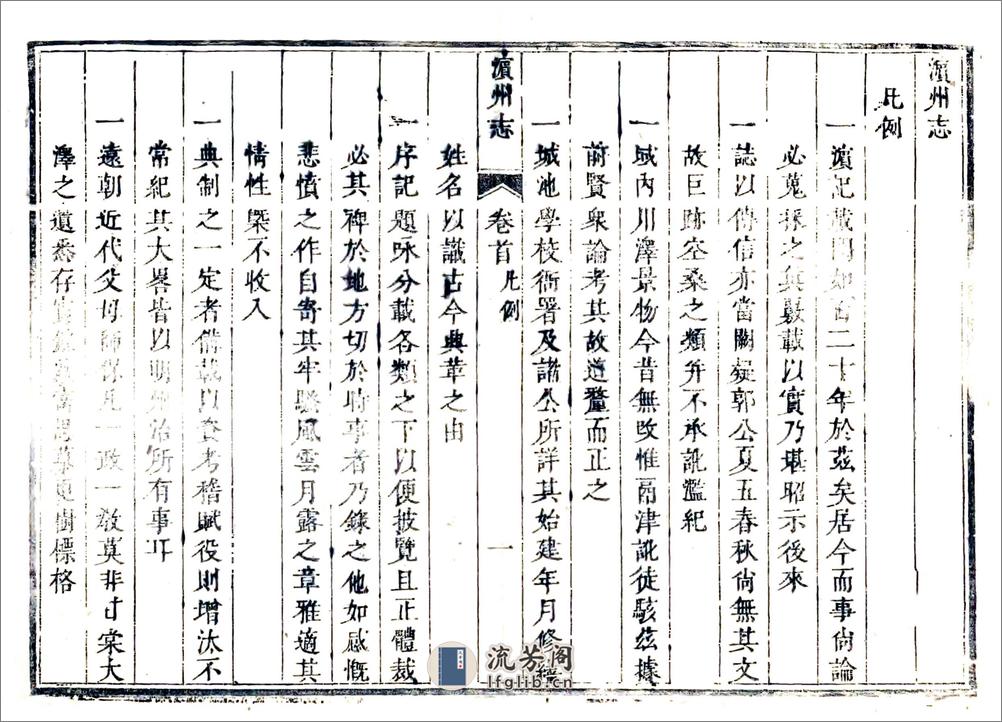 濵州志
凡例
一濵記載閱如百二十年於茲矣居今而事尙論
必蒐採之與覈載以實乃堪昭示後來
一誌以傳信亦當闕疑郭公夏五春秋尙無其文
故巨跡空桑之類并不承訛濫紀
一域內川澤景物今昔無改惟鬲津訛徒駭茲據
前賢衆論考其故道釐而正之
一城池學校衙署及諸公所詳其始建年月修
濵州志 卷首 凡例 一
姓名以識古今典革之由
一序記題咏分載各類之下以便披覽且正體裁
必其裨於地方切於時事者乃錄之他如感慨
悲憤之作自寄其牢騷風雲月露之章雅適其
情性槩不收入
一典制之一定者備載以資考稽賦役則增汰不
常紀其大畧皆以明州治所有事耳
一遠朝近代父母師保凡一政一敎莫非甘棠大
澤之遺悉存實思慕更樹標格
流芳阁
lfglib.cn